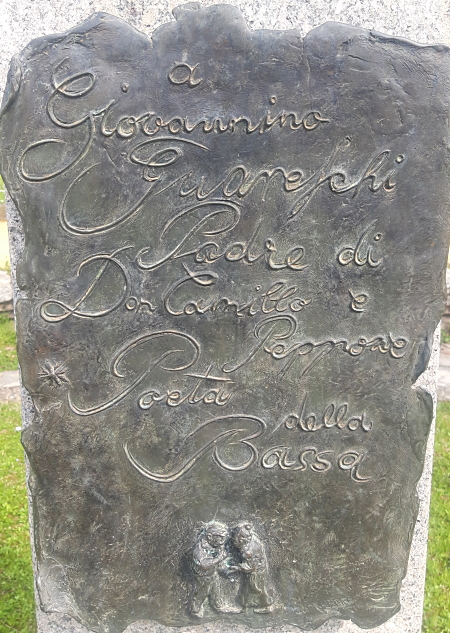 a
Giovannino
Guareschi
Padre di
Don Camillo e
Peppone
Poeta
della
Bassa